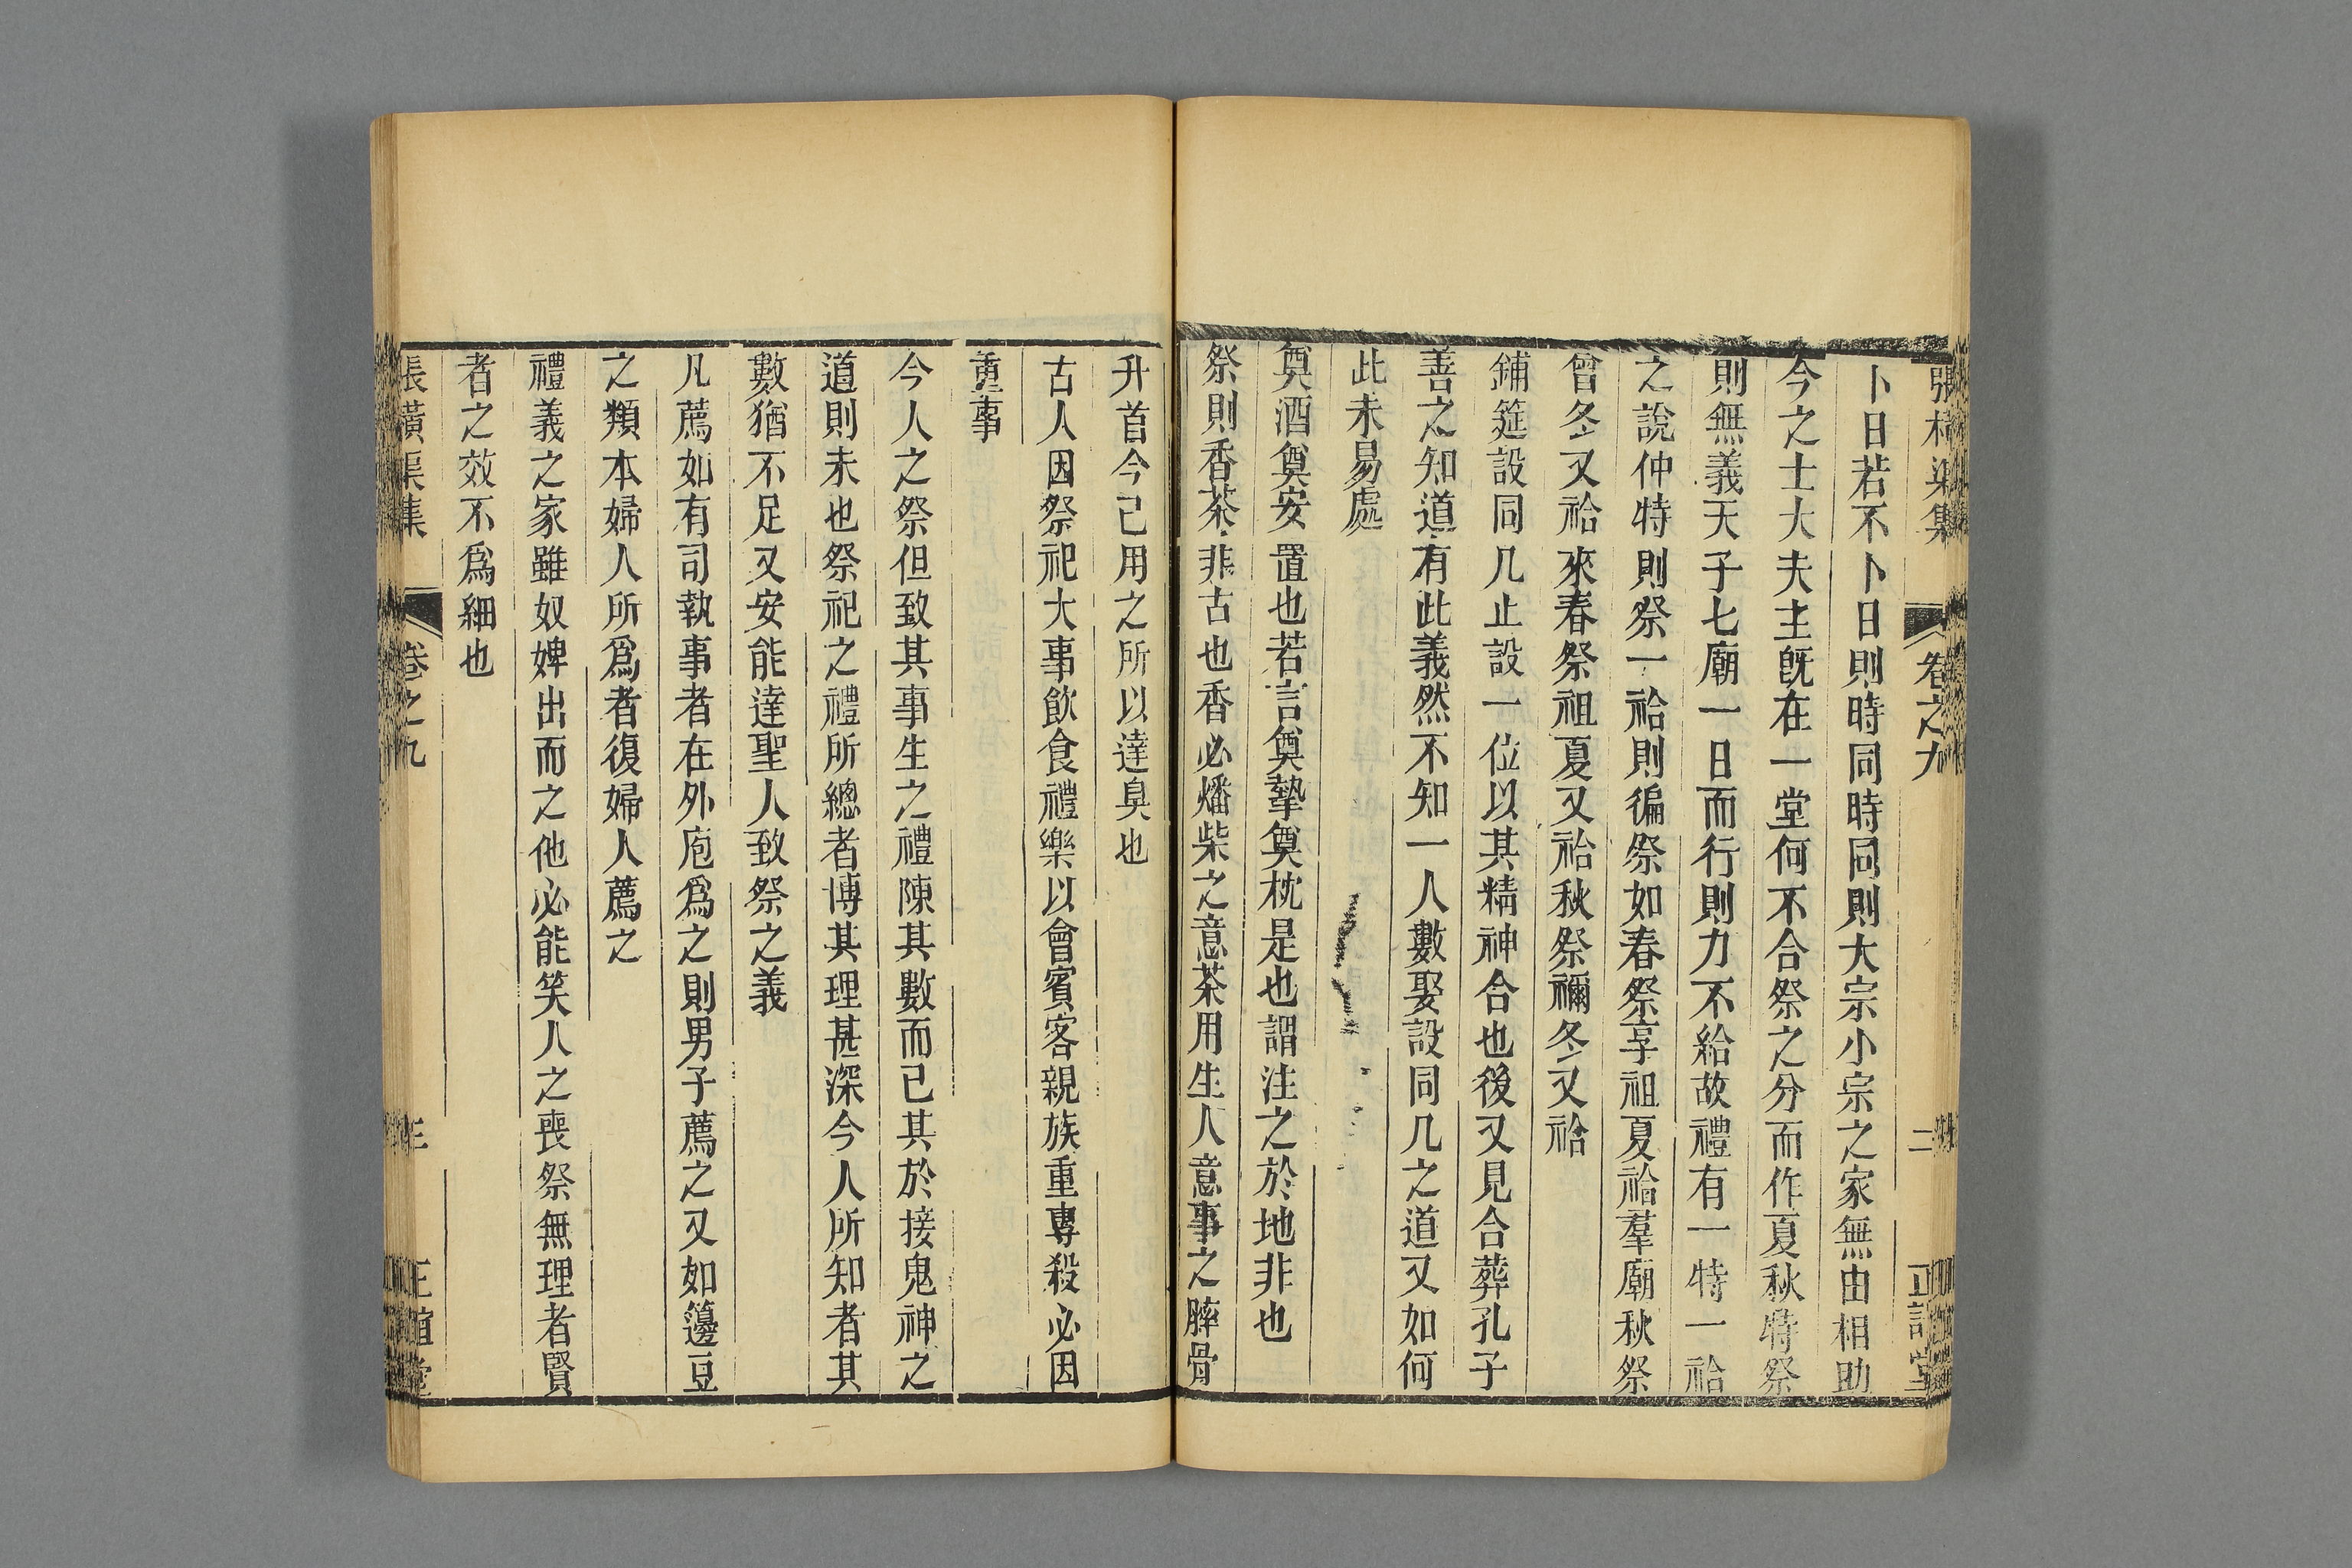 張横渠集 卷之九 二 正誼堂
卜日若不卜日則時同時同則大宗小宗之家無由相助
今之士大夫主旣在一堂何不合祭之分而作夏秋特祭
則無義天子七廟一日而行則力不給故禮有一特一祫
之說仲特則祭一祫則徧祭如春祭享祖夏祫羣廟秋祭
曾冬又祫來春祭祖夏又祫秋祭禰冬又祫
鋪筵設同几止設一位以其精神合也後又見合葬孔子
善之知道有此義然不知一人數娶設同几之道又如何
此未易處
奠酒奠安置也若言奠摯奠枕是也謂注之於地非也
祭則香茶非古也香必燔柴之意茶用生人意事之膟骨
升首今己用之所以達臭也
古人因祭祀大事飮食禮樂以會賓客親族重專殺必因
重事
今人之祭但致其事生之禮陳其數而已其於接鬼神之
道則未也祭祀之禮所總者博其理甚深今人所知者其
數猶不足又安能達聖人致祭之義
凡薦如有司執事者在外庖爲之則男子薦之又如籩豆
之類本婦人所爲者復婦人薦之
禮義之家雖奴婢出而之他必能笑人之喪祭無理者賢
者之效不爲細也
張橫渠集 卷之九 三 正誼堂